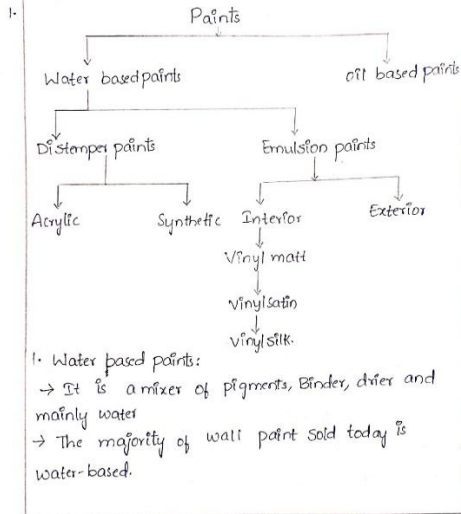 1.
Paints
Water based paints
oil based paints
Distemper paints
Emulsion paints
Acrylic
Synthetic
Interior
Exterior
Vinyl matt
vinyl satin
vinyl silk.
1. Water based paints:
→ It is a mixer of pigments, Binder, drier and
mainly water
→ The majority of wall paint sold today is
water-based.